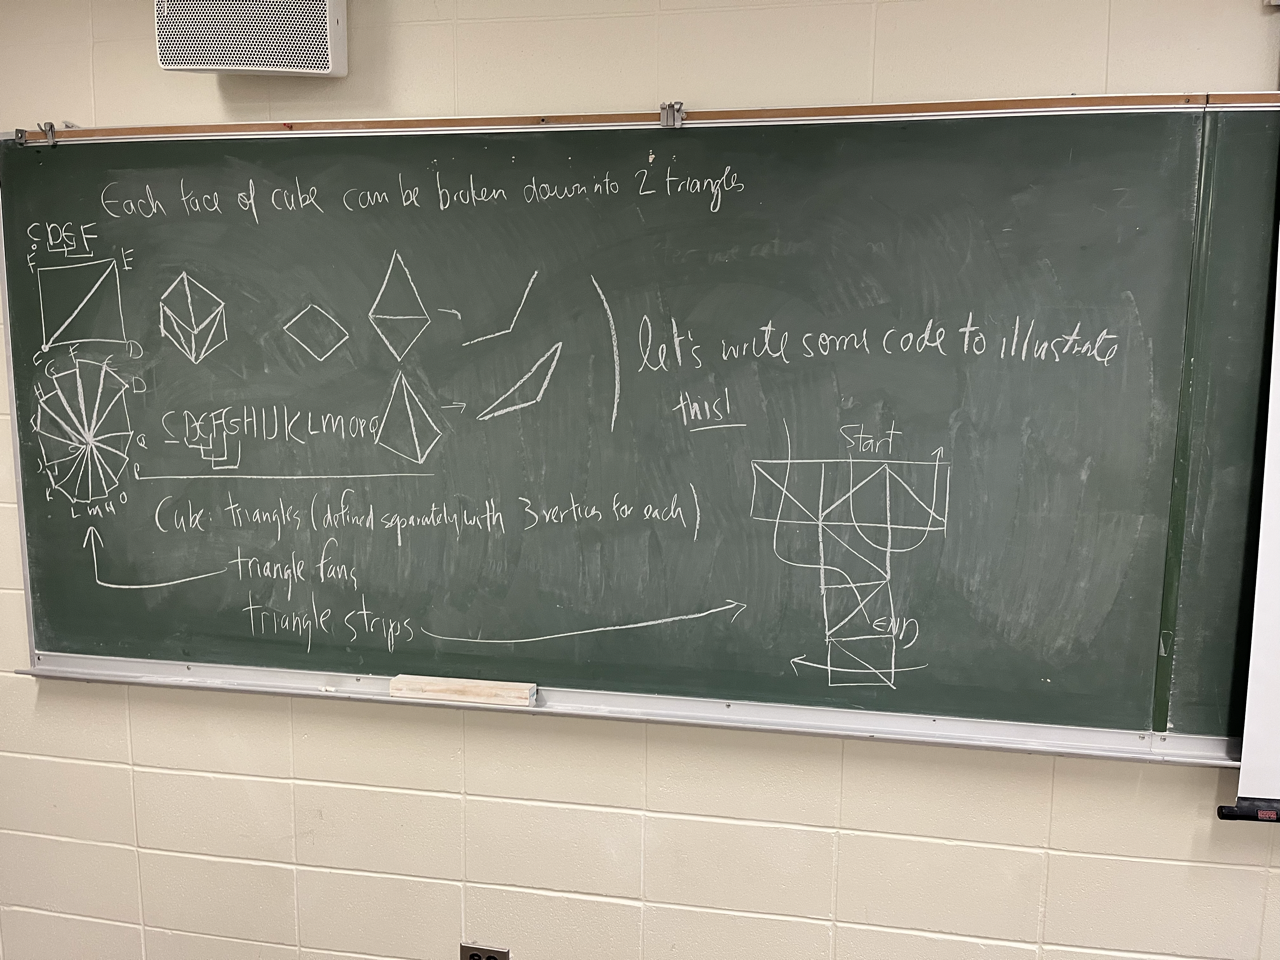 Each face of cube can be broken down into 2 triangles
C DEF
F E
C D
G F E D
H
C Q
J P
K L M N O
C DEFGHIJKLMOPQ
let's write some code to illustrate
this!
Start
Cube: triangles (defined separately with 3 vertices for each)
triangle fans
triangle strips
END